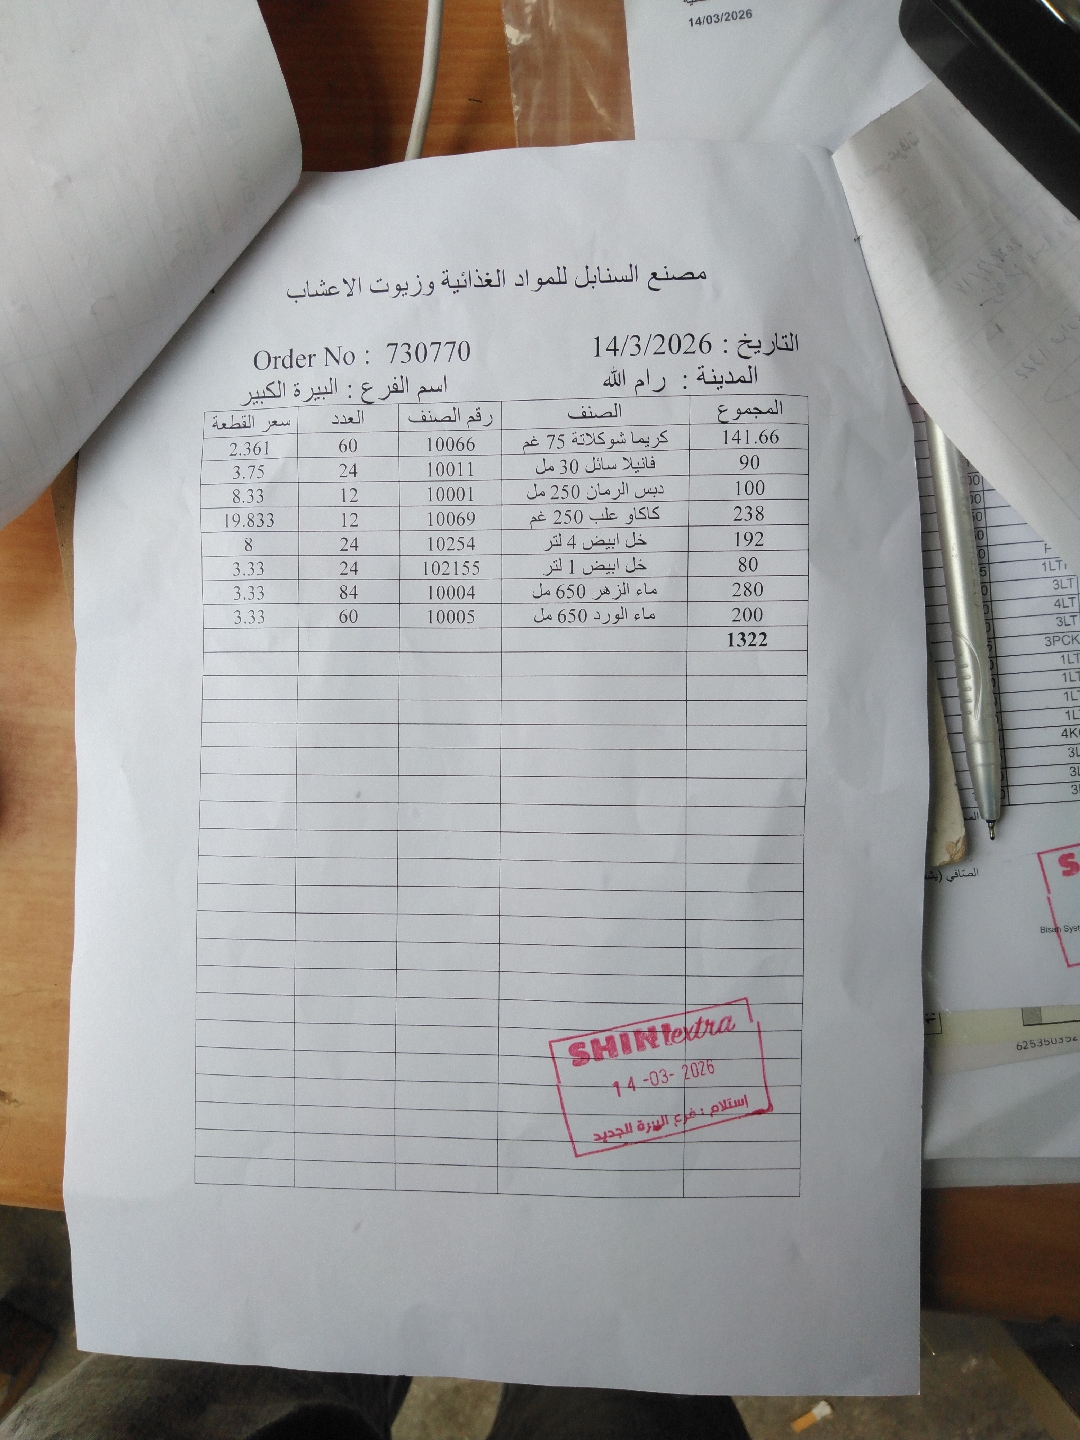 14/03/2026
مصنع السنابل للمواد الغذائية وزيوت الاعشاب
التاريخ : 14/3/2026 Order No : 730770
المدينة : رام الله اسم الفرع : البيرة الكبير
المجموع الصنف رقم الصنف العدد سعر القطعة
141.66 كريما شوكلاتة 75 غم 10066 60 2.361
90 فانيلا سائل 30 مل 10011 24 3.75
100 دبس الرمان 250 مل 10001 12 8.33
238 كاكاو علب 250 غم 10069 12 19.833
192 خل ابيض 4 لتر 10254 24 8
80 خل ابيض 1 لتر 102155 24 3.33
280 ماء الزهر 650 مل 10004 84 3.33
200 ماء الورد 650 مل 10005 60 3.33
1322
SHINIextra
14-03-2026
إستلام : فرع البيرة الجديد
1LT
3LT
4LT
3LT
3PCK
1LT
1LT
1LT
1L
4K
3L
3L
الصافي